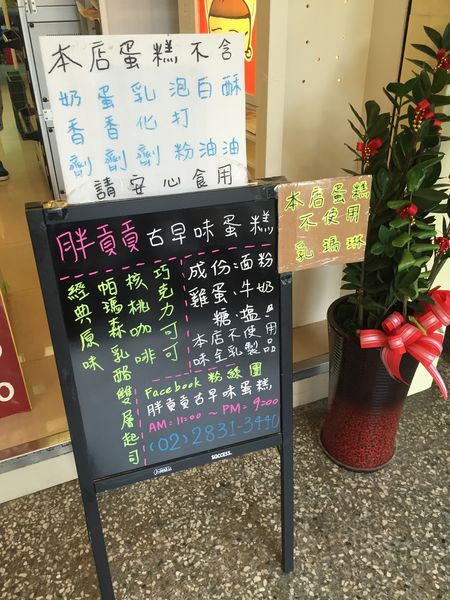 本店蛋糕不含
奶香劑
蛋香劑
乳化劑
泡打粉
白油
酥油
請安心食用
本店蛋糕
不使用
乳瑪琳
胖貢貢古早味蛋糕
經典原味
帕瑪森乳酪
核桃咖啡
巧克力可可
雙層起司
成份:面粉
雞蛋、牛奶
糖、塩。
本店不使用
味全乳製品
Facebook 粉絲團
胖貢貢古早味蛋糕
AM=11:00 ~ PM=9:00
(02)2831-3440
SUCCESS.